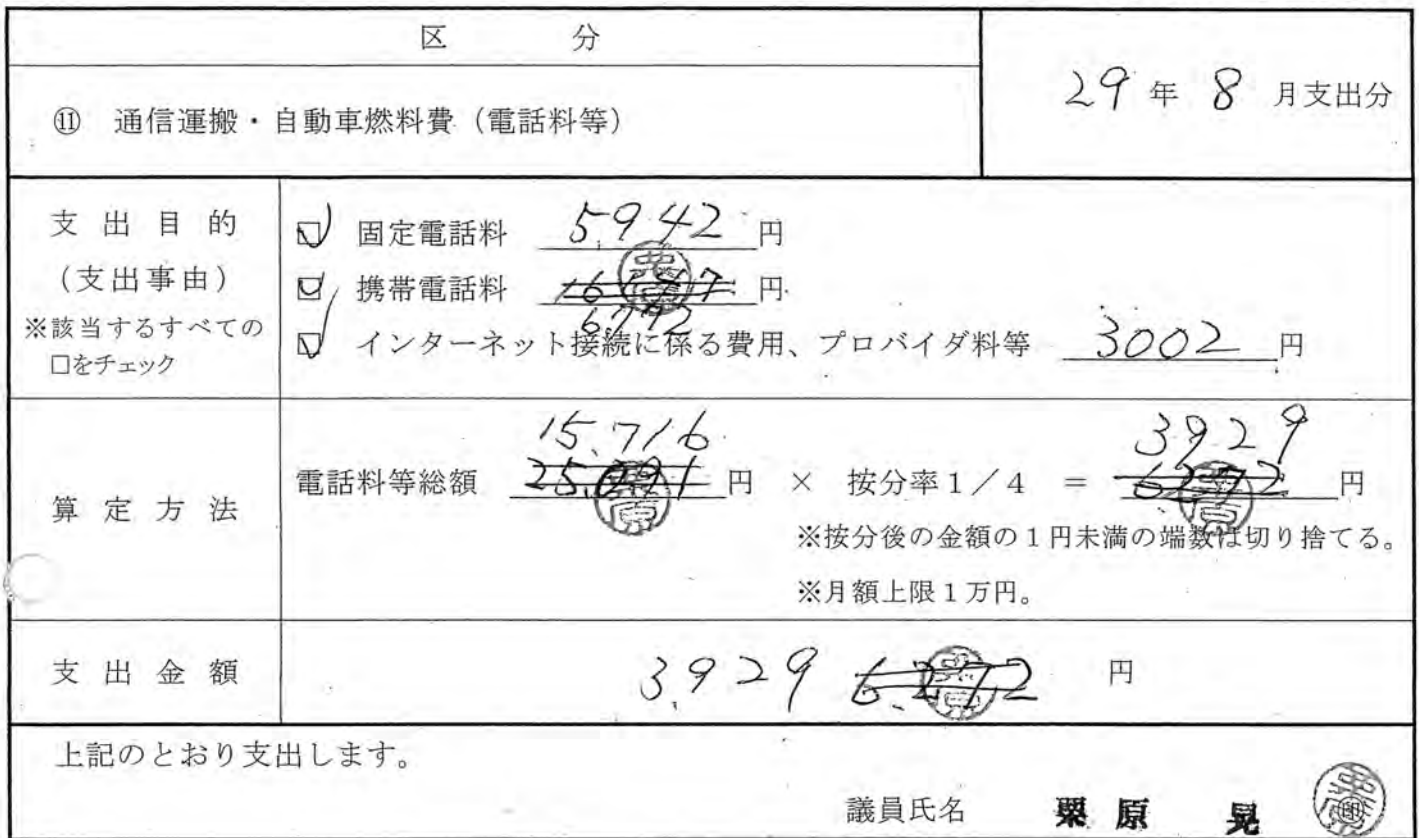 区 分
⑪ 通信運搬・自動車燃料費（電話料等）
29 年 8 月支出分
支 出 目 的
（支出事由）
※該当するすべての
□をチェック
☑ 固定電話料 5,942 円
☑ 携帯電話料 円
6772
☑ インターネット接続に係る費用、プロバイダ料等 3002 円
算 定 方 法
15,716 3929
電話料等総額 円 × 按分率1／4 ＝ 6272 円
※按分後の金額の1円未満の端数は切り捨てる。
※月額上限1万円。
支 出 金 額
3,929 6,272 円
上記のとおり支出します。
議員氏名 栗原 晃 ㊞